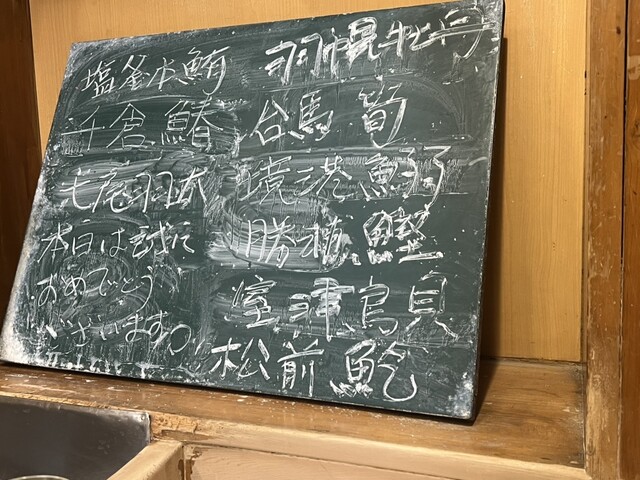 塩釜本鮪
千倉鰆
七尾羽太
本日は誠に
おめでとう
ございます。
羽幌牡丹
合馬筍
境港鰯
勝浦鰹
室津鳥貝
松前鮑